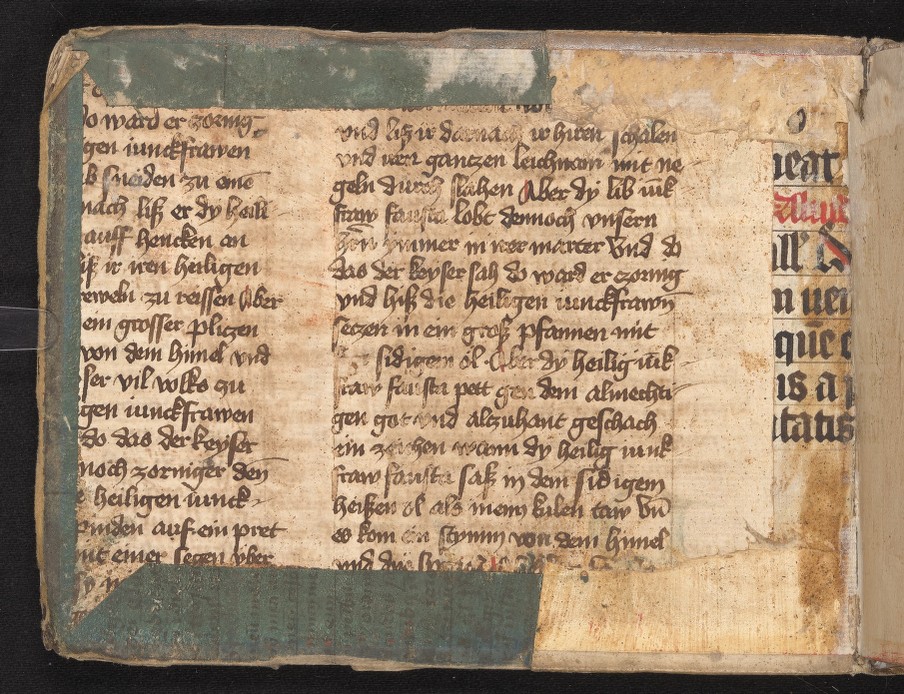 do ward er zornig
gen iunckfrawen
zu einē
nach liß er dy heili
auff hencken an
ir iren heiligen
zu reissen Aber
em grosser pliczen
von dem himel vnd
ser vil volks zu
gen iunckfrawen
do das der keyser
noch zorniger den
heiligen iunck-
auf ein pret
mit einer segen vber
vnd liß ir darnach ir hiren schalen
vnd iren gantzen leichnam mit ne
geln durch slahen Aber dy lib iuk
fraw fausta lobt dennoch vnsern
in irer marter Vnd do
das der keyser sah do ward er zornig
vnd hiß die heiligen iunckfrawn
seczen in ein groß pfannen mit
sidigem ol Aber dy heilig iūk
fraw fausta pett gen dem almechti
gen got vnd alzuhant geschach
ein zeichen wann dy heilig iunk
fraw fausta saß in dem sidigem
heißen ol als in eim kulen taw Vn̄
es kom ein stymm von dem himel
vnd
que
is a
itatis